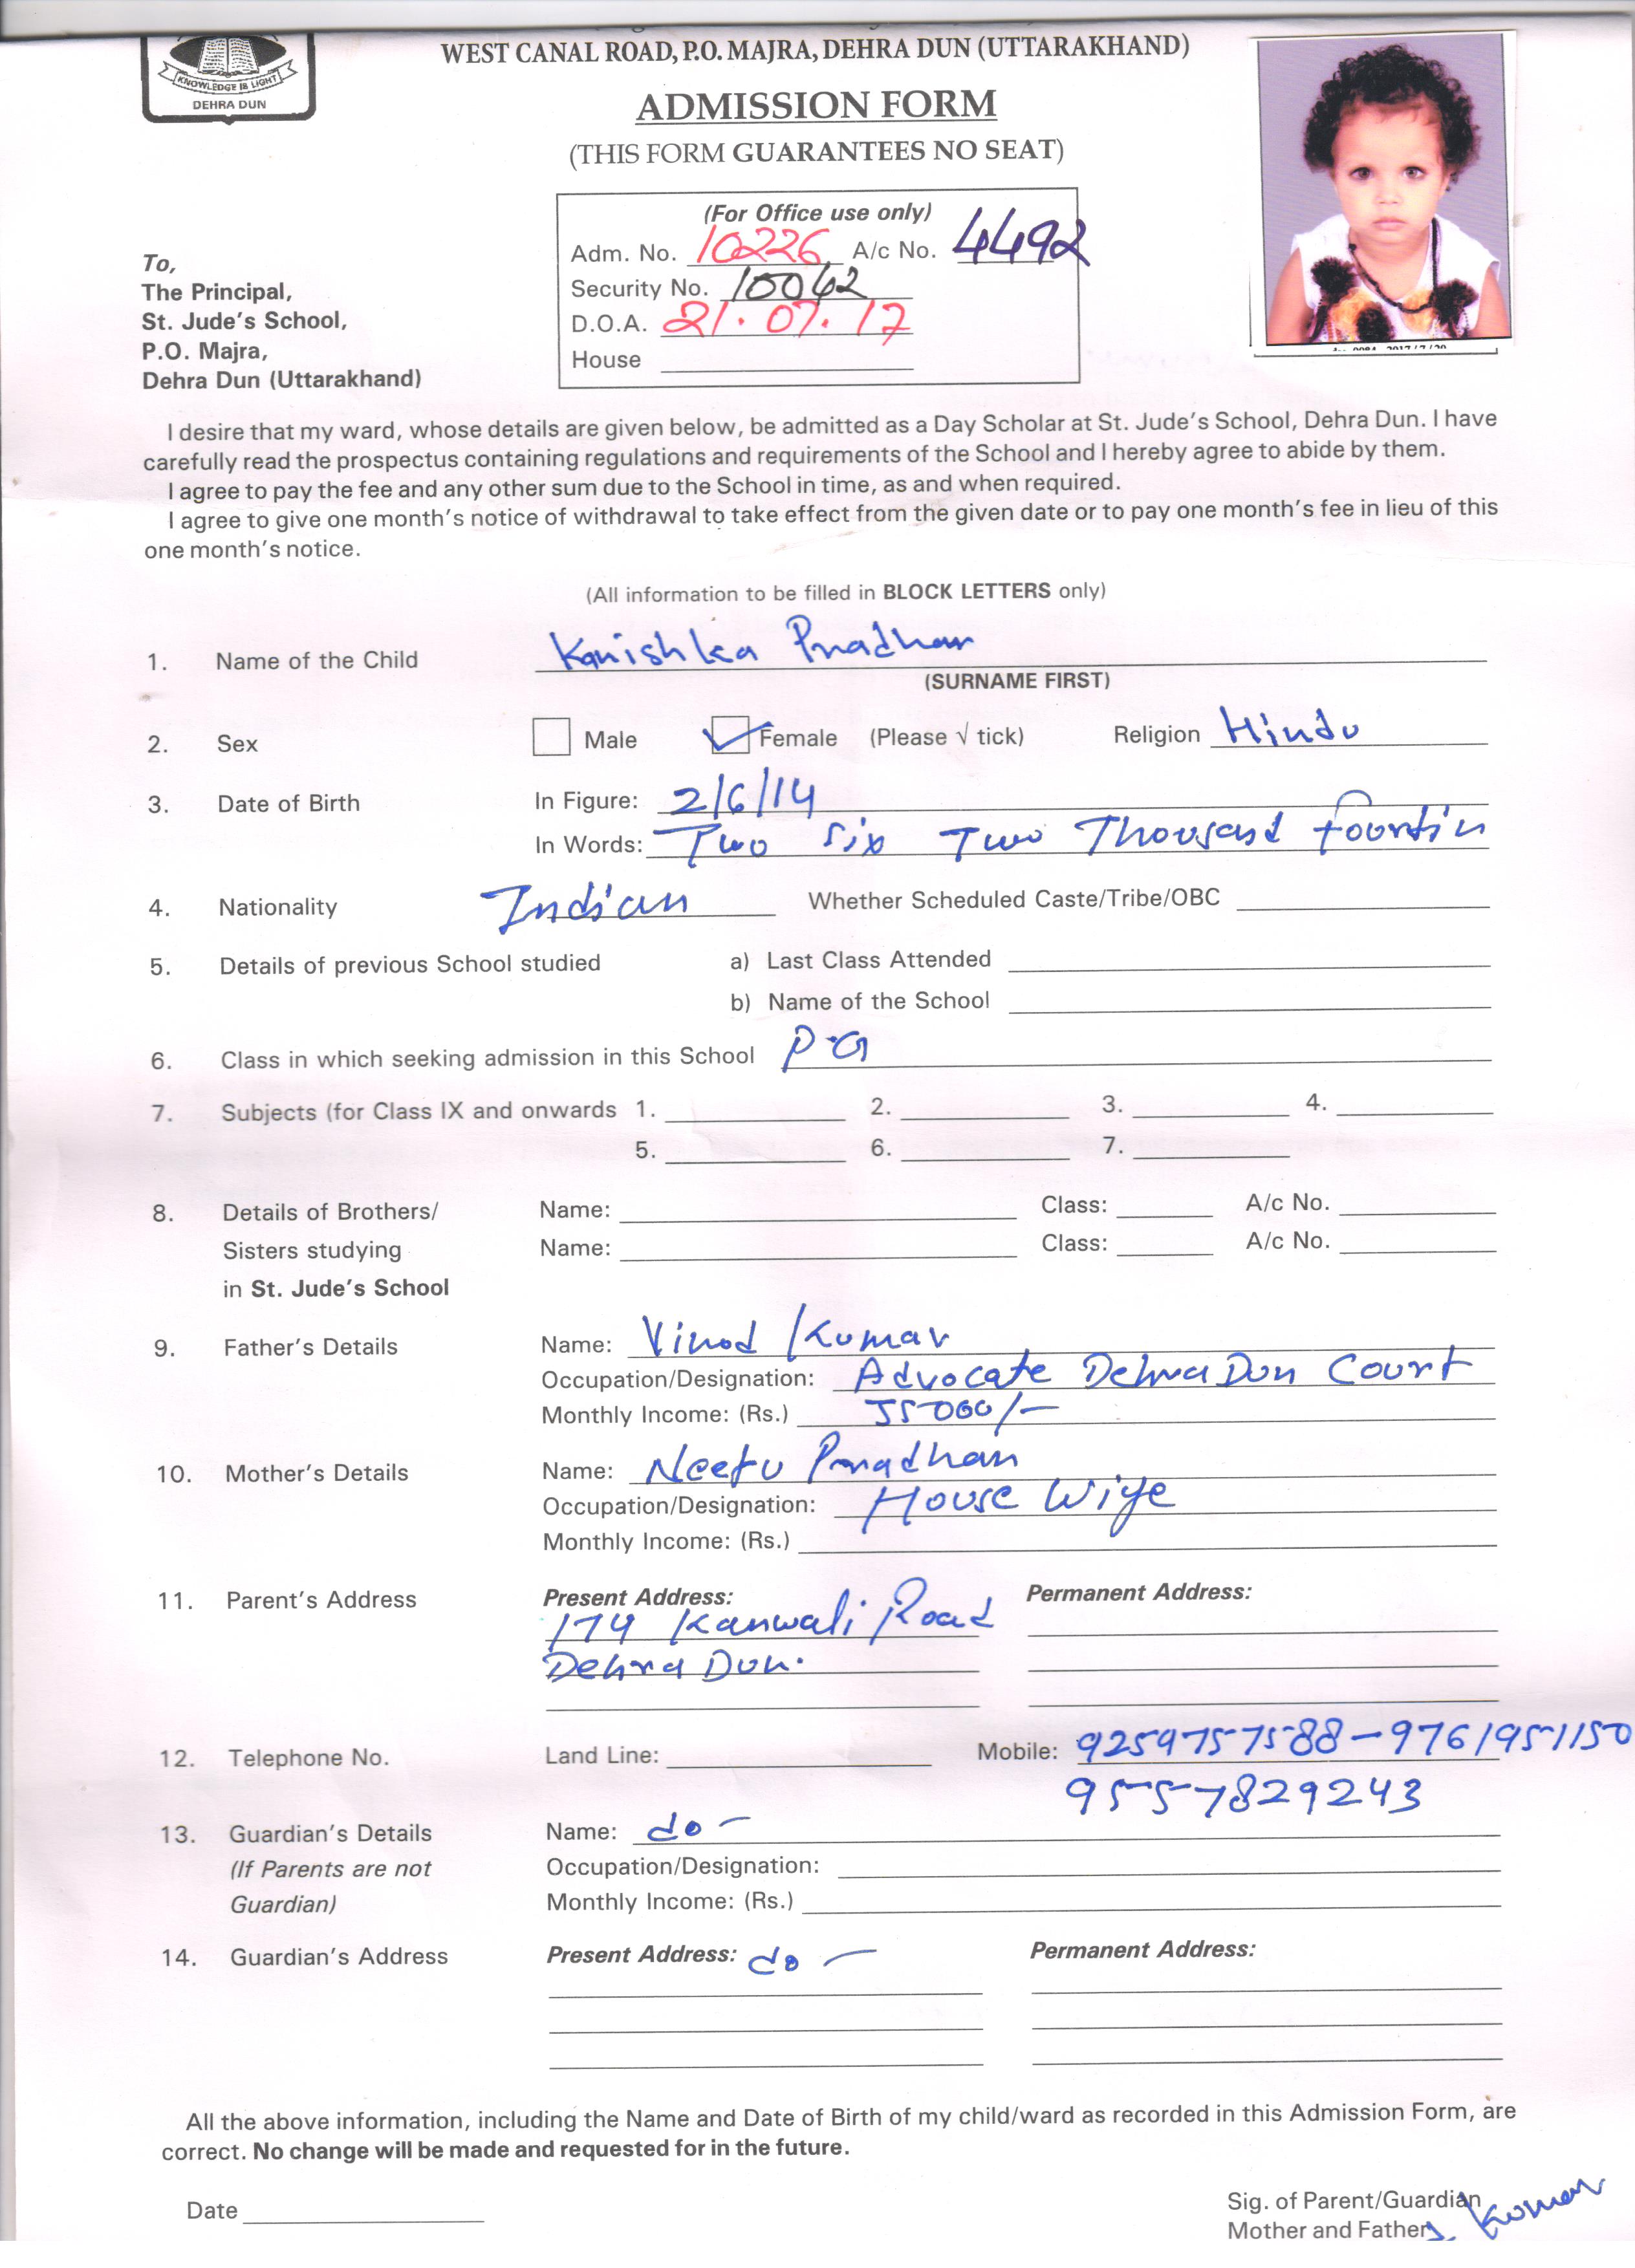 KNOWLEDGE IS LIGHT
DEHRA DUN
WEST CANAL ROAD, P.O. MAJRA, DEHRA DUN (UTTARAKHAND)
ADMISSION FORM
(THIS FORM GUARANTEES NO SEAT)
(For Office use only)
Adm. No. 10226 A/c No. 4492
Security No. 10042
D.O.A. 21.07.17
House
To,
The Principal,
St. Jude's School,
P.O. Majra,
Dehra Dun (Uttarakhand)
I desire that my ward, whose details are given below, be admitted as a Day Scholar at St. Jude's School, Dehra Dun. I have
carefully read the prospectus containing regulations and requirements of the School and I hereby agree to abide by them.
I agree to pay the fee and any other sum due to the School in time, as and when required.
I agree to give one month's notice of withdrawal to take effect from the given date or to pay one month's fee in lieu of this
one month's notice.
(All information to be filled in BLOCK LETTERS only)
1. Name of the Child Kanishka Pradhan
(SURNAME FIRST)
2. Sex Male Female (Please √ tick) Religion Hindu
3. Date of Birth In Figure: 2/6/14
In Words: Two Six Two Thousand fourtin
4. Nationality Indian Whether Scheduled Caste/Tribe/OBC
5. Details of previous School studied a) Last Class Attended
b) Name of the School
6. Class in which seeking admission in this School P.G
7. Subjects (for Class IX and onwards 1. 2. 3. 4.
5. 6. 7.
8. Details of Brothers/ Name: Class: A/c No.
Sisters studying Name: Class: A/c No.
in St. Jude's School
9. Father's Details Name: Vinod Kumar
Occupation/Designation: Advocate Dehra Dun Court
Monthly Income: (Rs.) 55000/-
10. Mother's Details Name: Neetu Pradhan
Occupation/Designation: House Wife
Monthly Income: (Rs.)
11. Parent's Address Present Address: Permanent Address:
174 Kanwali Road
Dehra Dun.
12. Telephone No. Land Line: Mobile: 9259757588-9761951150
9557829243
13. Guardian's Details Name: do -
(If Parents are not Occupation/Designation:
Guardian) Monthly Income: (Rs.)
14. Guardian's Address Present Address: do - Permanent Address:
All the above information, including the Name and Date of Birth of my child/ward as recorded in this Admission Form, are
correct. No change will be made and requested for in the future.
Date
Sig. of Parent/Guardian
Mother and Father Kumar